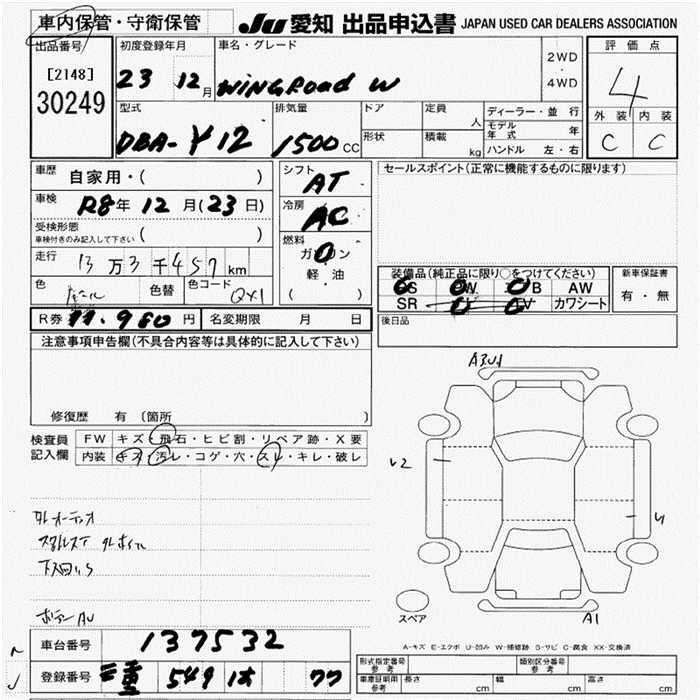 車内保管・守衛保管
JU 愛知 出品申込書 JAPAN USED CAR DEALERS ASSOCIATION
出品番号
[2148]
30249
初度登録年月
23 12月
車名・グレード
WINGROAD W
2WD
・
4WD
評価点
4
外装 内装
C C
型式
DBA-Y12
排気量
1500CC
ドア
形状
定員
人
積載
kg
ディーラー・並行
モデル年式 年
ハンドル 左・右
車歴
自家用・( )
車検
R8年 12月(23日)
受検形態
車検付きのみ記入して下さい ( )
走行
13万3千457km
色
色替
色コード
QX1
シフト
AT
冷房
AC
燃料
ガソリン
軽・油
( )
セールスポイント(正常に機能するものに限ります)
装備品(純正品に限り○をつけてください)
PS PW AB AW
SR TV カワシート
新車保証書
有・無
後日品
R券 11.960円
名変期限 月 日
注意事項申告欄(不具合内容等は具体的に記入して下さい)
修復歴 有(箇所 )
検査員
記入欄
FW キズ・飛石・ヒビ割・リペア跡・X要
内装 キズ・汚レ・コゲ・穴・スレ・キレ・破レ
A3U1
A1
スペア
A-キズ E-エクボ U-凹み W-補修跡 S-サビ C-腐食 XX-交換済
車台番号
137532
登録番号
三重 549 ほ 77
形式指定番号
参考
類別区分番号
参考
車庫証明用
参考
長さ cm
幅 cm
高さ cm